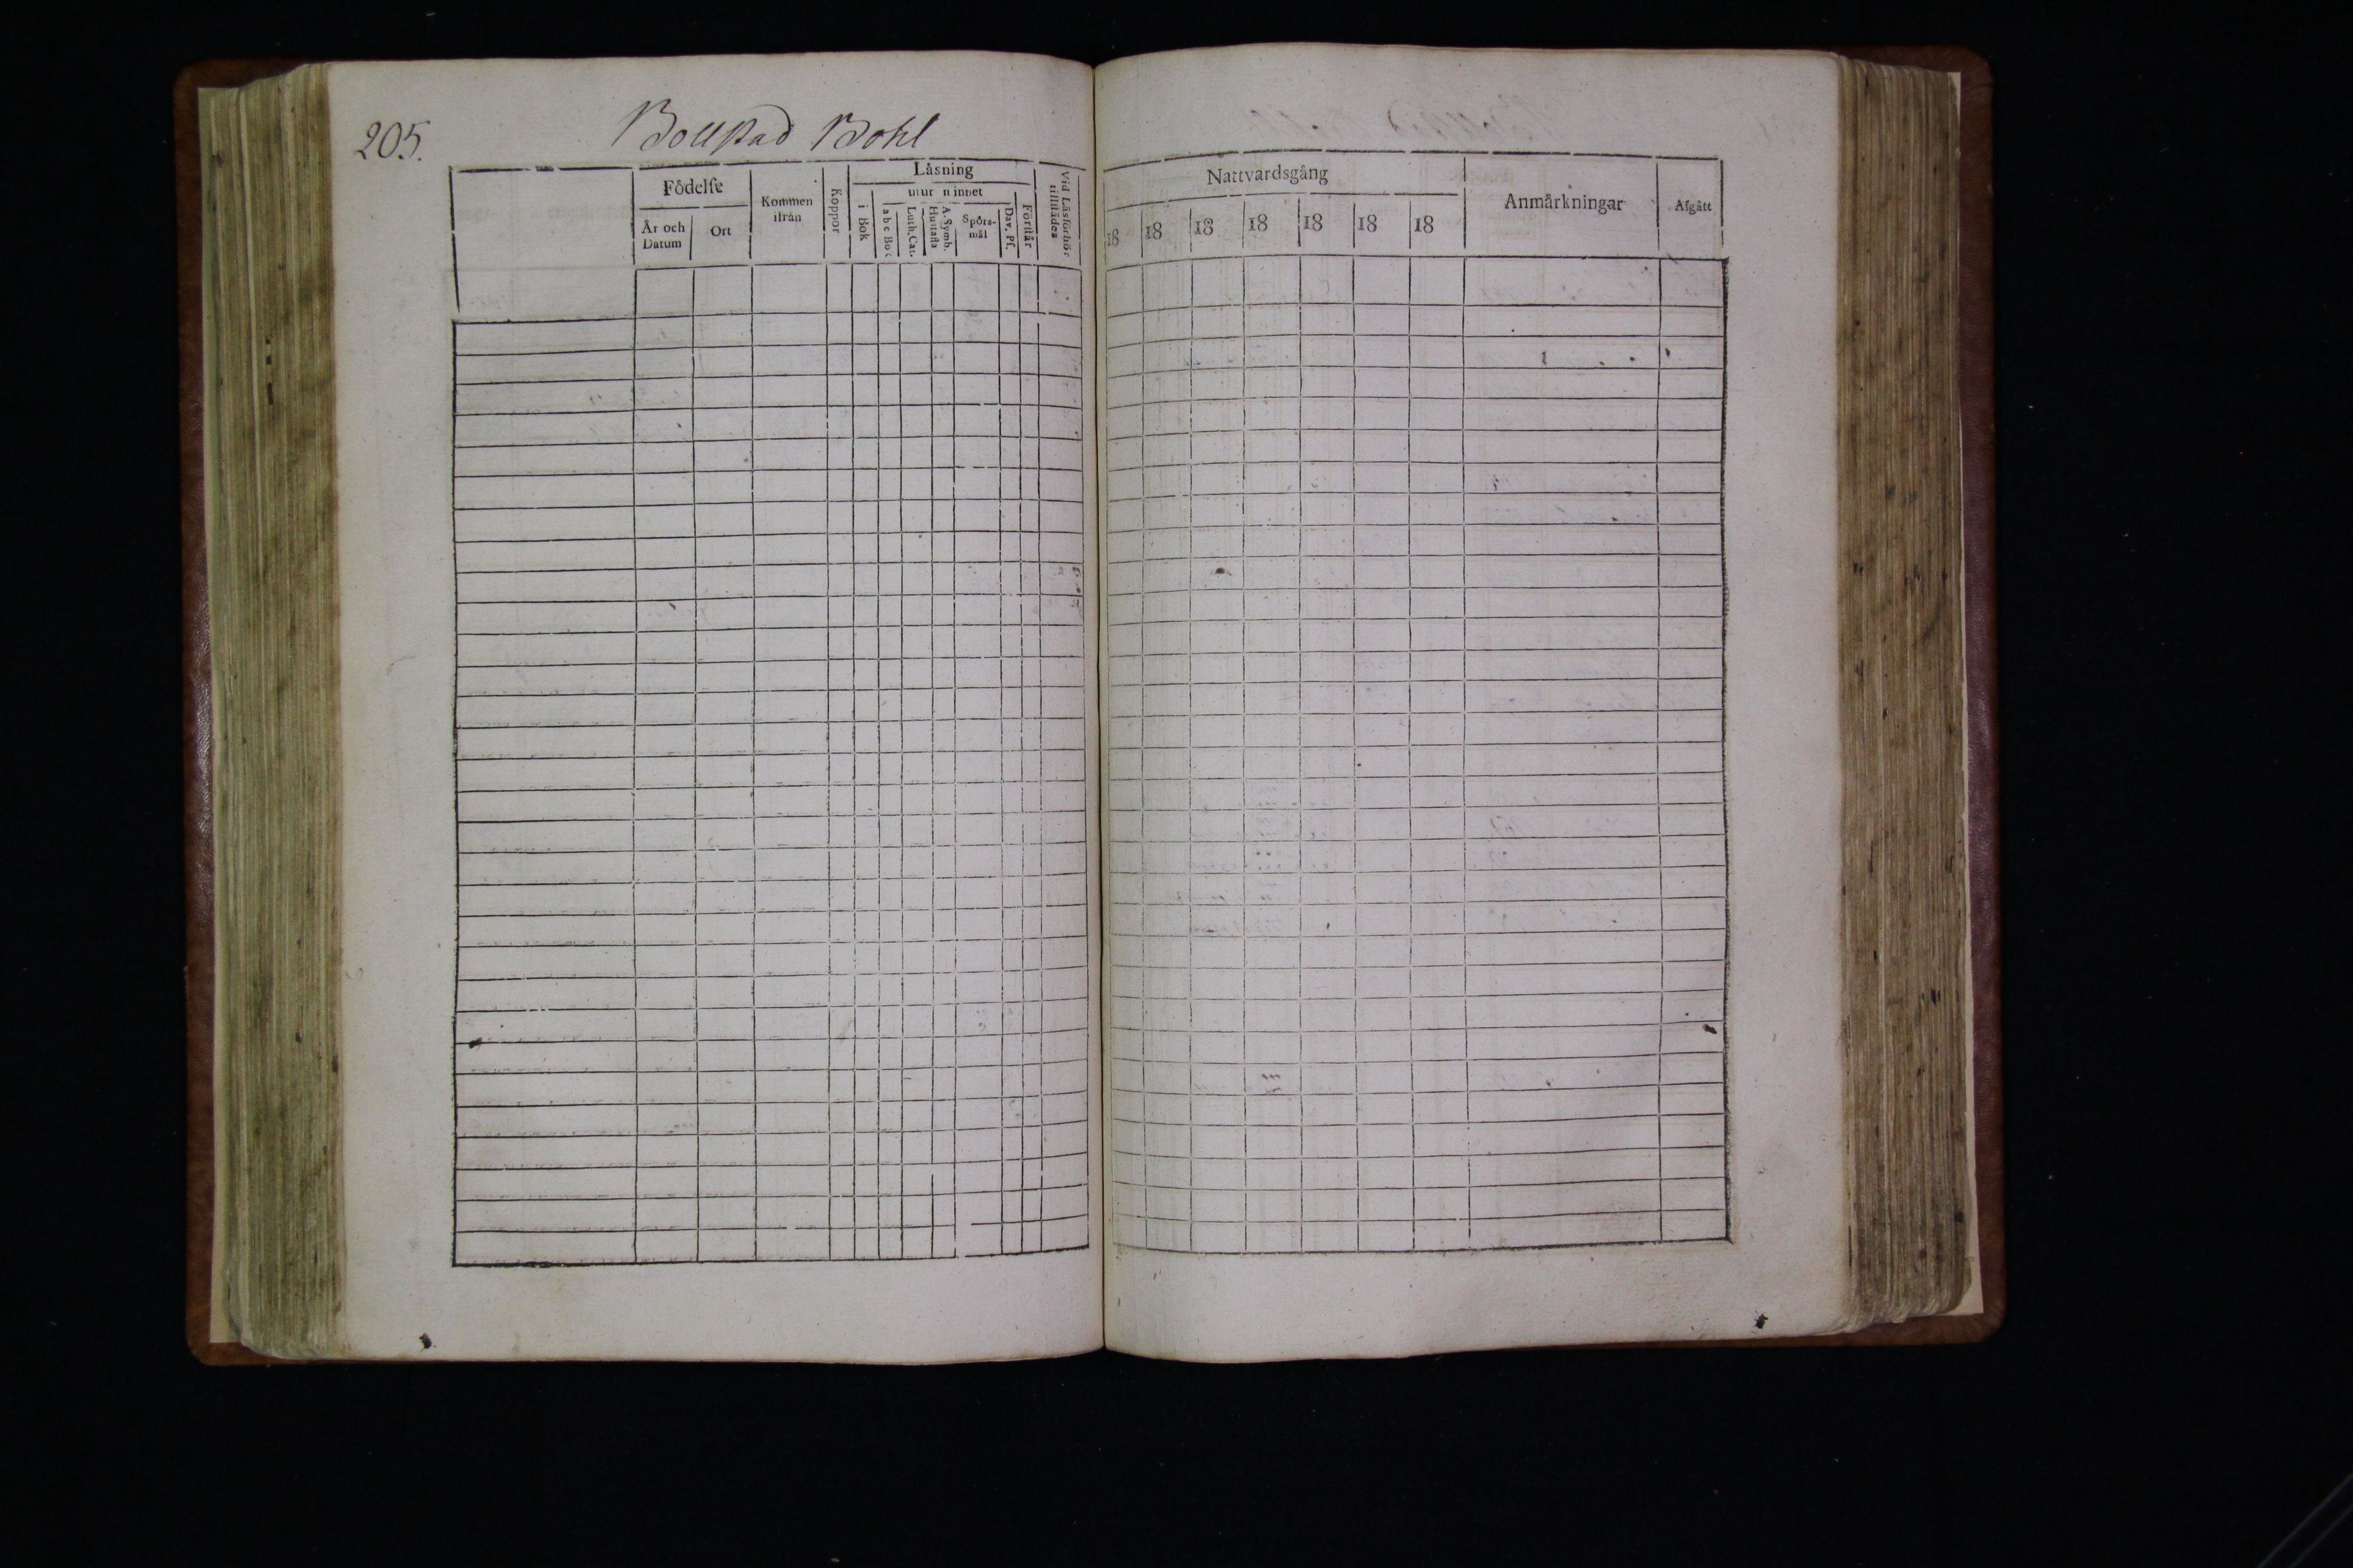 205.
Bollstad Bohl
Födelse
År och Datum
Ort
Kommen ifrån
Koppor
Läsning
i Bok
utur minnet
a b c Bok
Luth. Cat.
Hustafla
A. Symb.
Spörsmål
Dav. Ps.
Förstår
Vid Läsförhör tillstädes
Nattvardsgång
18 18 18 18 18 18 18
Anmärkningar
Afgått